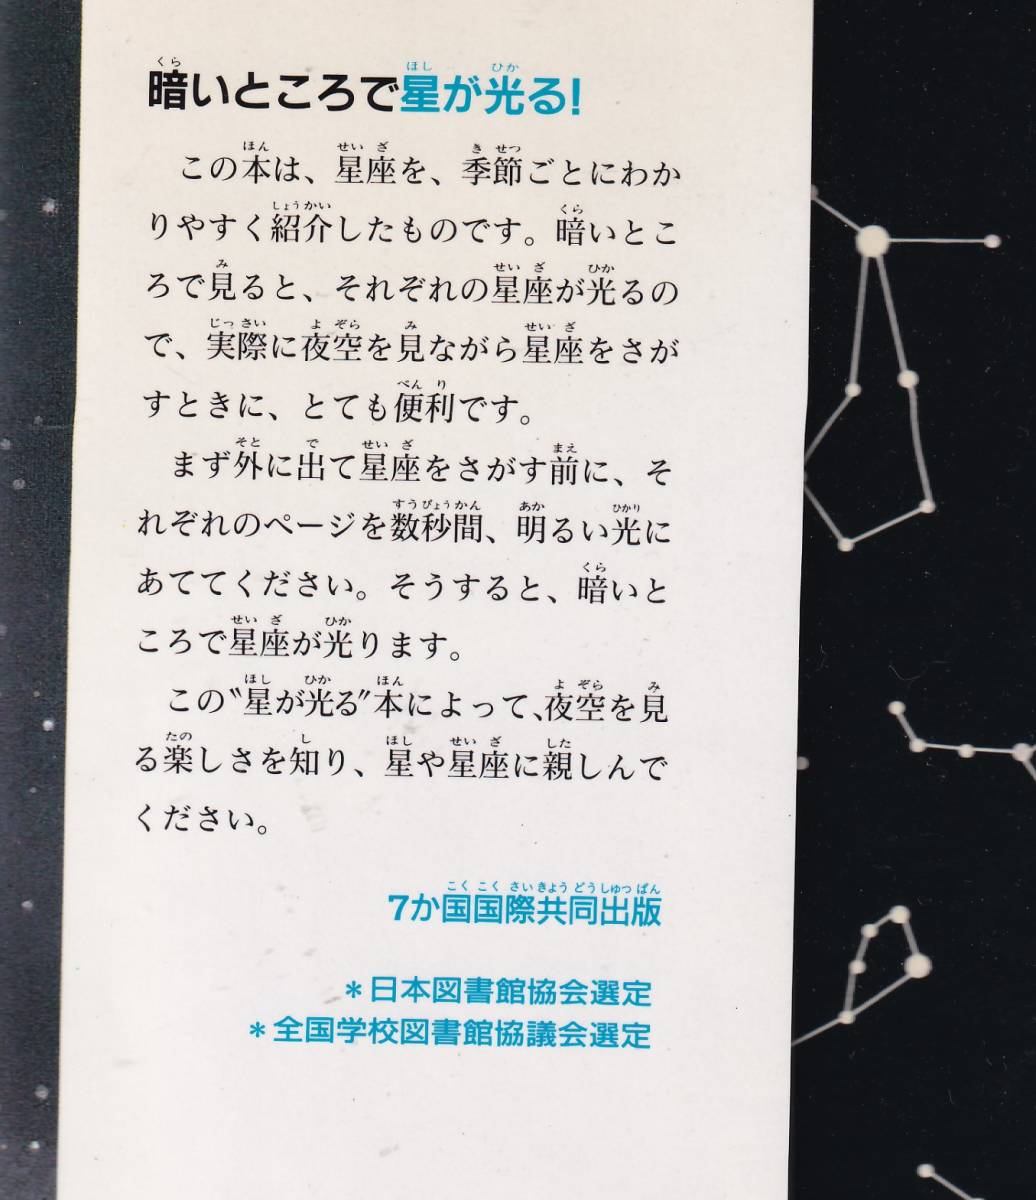 暗いところで星が光る!
この本は、星座を、季節ごとにわか
りやすく紹介したものです。暗いとこ
ろで見ると、それぞれの星座が光るの
で、実際に夜空を見ながら星座をさが
すときに、とても便利です。
まず外に出て星座をさがす前に、そ
れぞれのページを数秒間、明るい光に
あててください。そうすると、暗いと
ころで星座が光ります。
この〝星が光る〟本によって、夜空を見
る楽しさを知り、星や星座に親しんで
ください。
7か国国際共同出版
*日本図書館協会選定
*全国学校図書館協議会選定